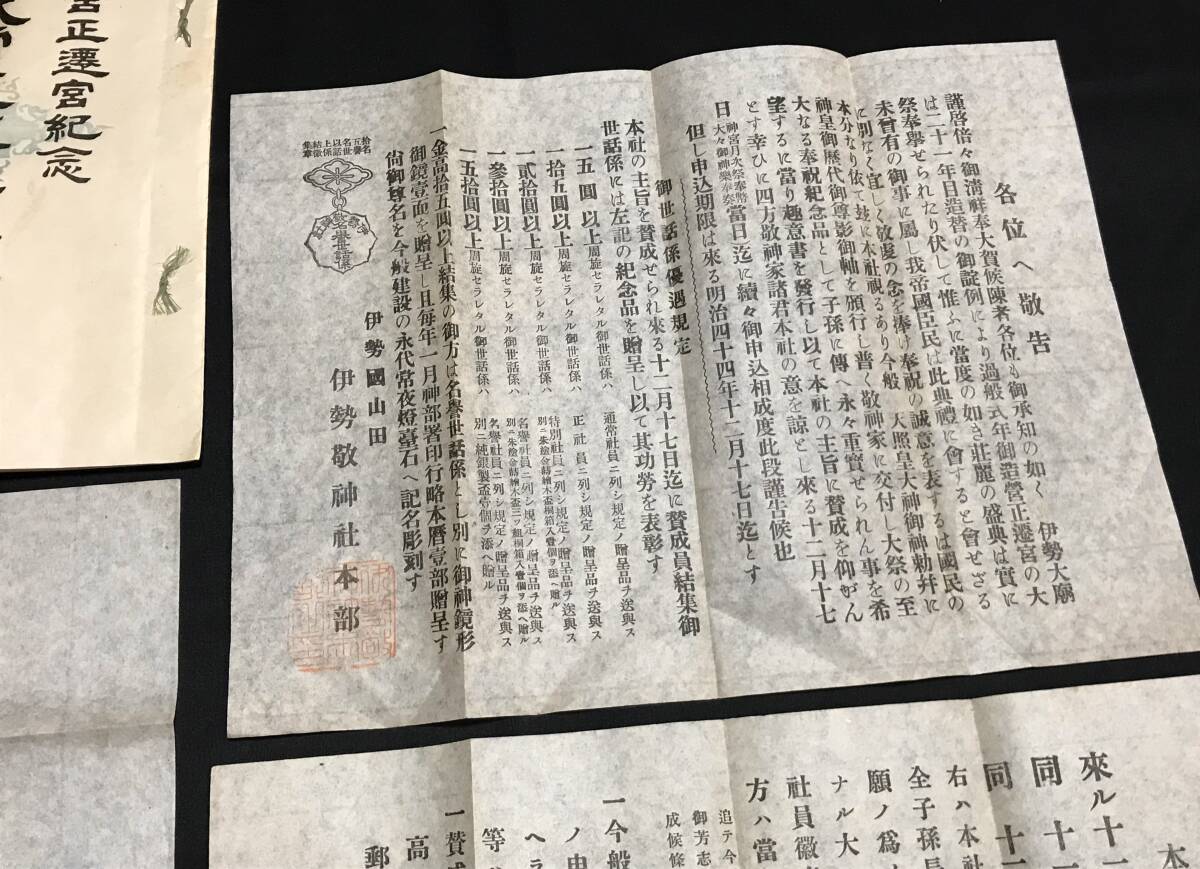 各位へ敬告
謹啓倍々御清祥奉大賀候陳者各位も御承知の如く伊勢大廟
は二十一年目造替の御諚例により過般式年御造營正遷宮の大
祭奉擧せられたり伏して惟ふに當度の如き莊麗の盛典は實に
未曾有の御事に屬し我帝國臣民は此典禮に會すると會せざる
に別なく宜しく敬虔の念を捧け奉祝の誠意を表するは國民の
本分なり依て玆に本社視るあり今般天照皇大神御神勅幷に
神皇御歷代御尊影御軸を頒行し普く敬神家に交付し大祭の至
大なる奉祝紀念品として子孫に傳へ永々重寶せられん事を希
望するに當り趣意書を發行し以て本社の主旨に賛成を仰がん
とす幸ひに四方敬神家諸君本社の意を諒とし來る十二月十七
日神宮月次祭奉幣大々御神樂奉奏當日迄に續々御申込相成度此段謹告候也
但し申込期限は來る明治四十四年十二月十七日迄とす
御世話係優遇規定
本社の主旨を賛成せられ來る十二月十七日迄に賛成員結集御
世話係には左記の紀念品を贈呈し以て其功勞を表彰す
一五圓以上周旋セラレタル御世話係ハ 通常社員ニ列シ規定ノ贈呈品ヲ送與ス
一拾五圓以上周旋セラレタル御世話係ハ 正社員ニ列シ規定ノ贈呈品ヲ送與ス
一貳拾圓以上周旋セラレタル御世話係ハ 特別社員ニ列シ規定ノ贈呈品ヲ送與ス別ニ朱塗金蒔繪木盃桐箱入壹個ヲ添ヘ贈ル
一參拾圓以上周旋セラレタル御世話係ハ 名譽社員ニ列シ規定ノ贈呈品ヲ送與ス別ニ朱塗金蒔繪木盃三ツ組桐箱入壹個ヲ添ヘ贈ル
一五拾圓以上周旋セラレタル御世話係ハ 名譽社員ニ列シ規定ノ贈呈品ヲ送與ス別ニ純銀製盃壹個ヲ添ヘ贈ル
一金高拾五圓以上結集の御方は名譽世話係とし別に御神鏡形
御鏡壹面を贈呈し且每年一月神部署印行略本曆壹部贈呈す
尙御尊名を今般建設の永代常夜燈臺石へ記名彫刻す
拾五名以上結集
名譽世話係徽章
名譽世話係
伊勢國山田
伊勢敬神社本部
宮正遷宮紀念
本
來ル十二
同十一
同十一
右ハ本社
全子孫長
願ノ爲
ナル大
社員徽
方ハ當
追テ今
御芳志
成候條
一今般
ノ申
ヘラ
等
一賛成
高
郵